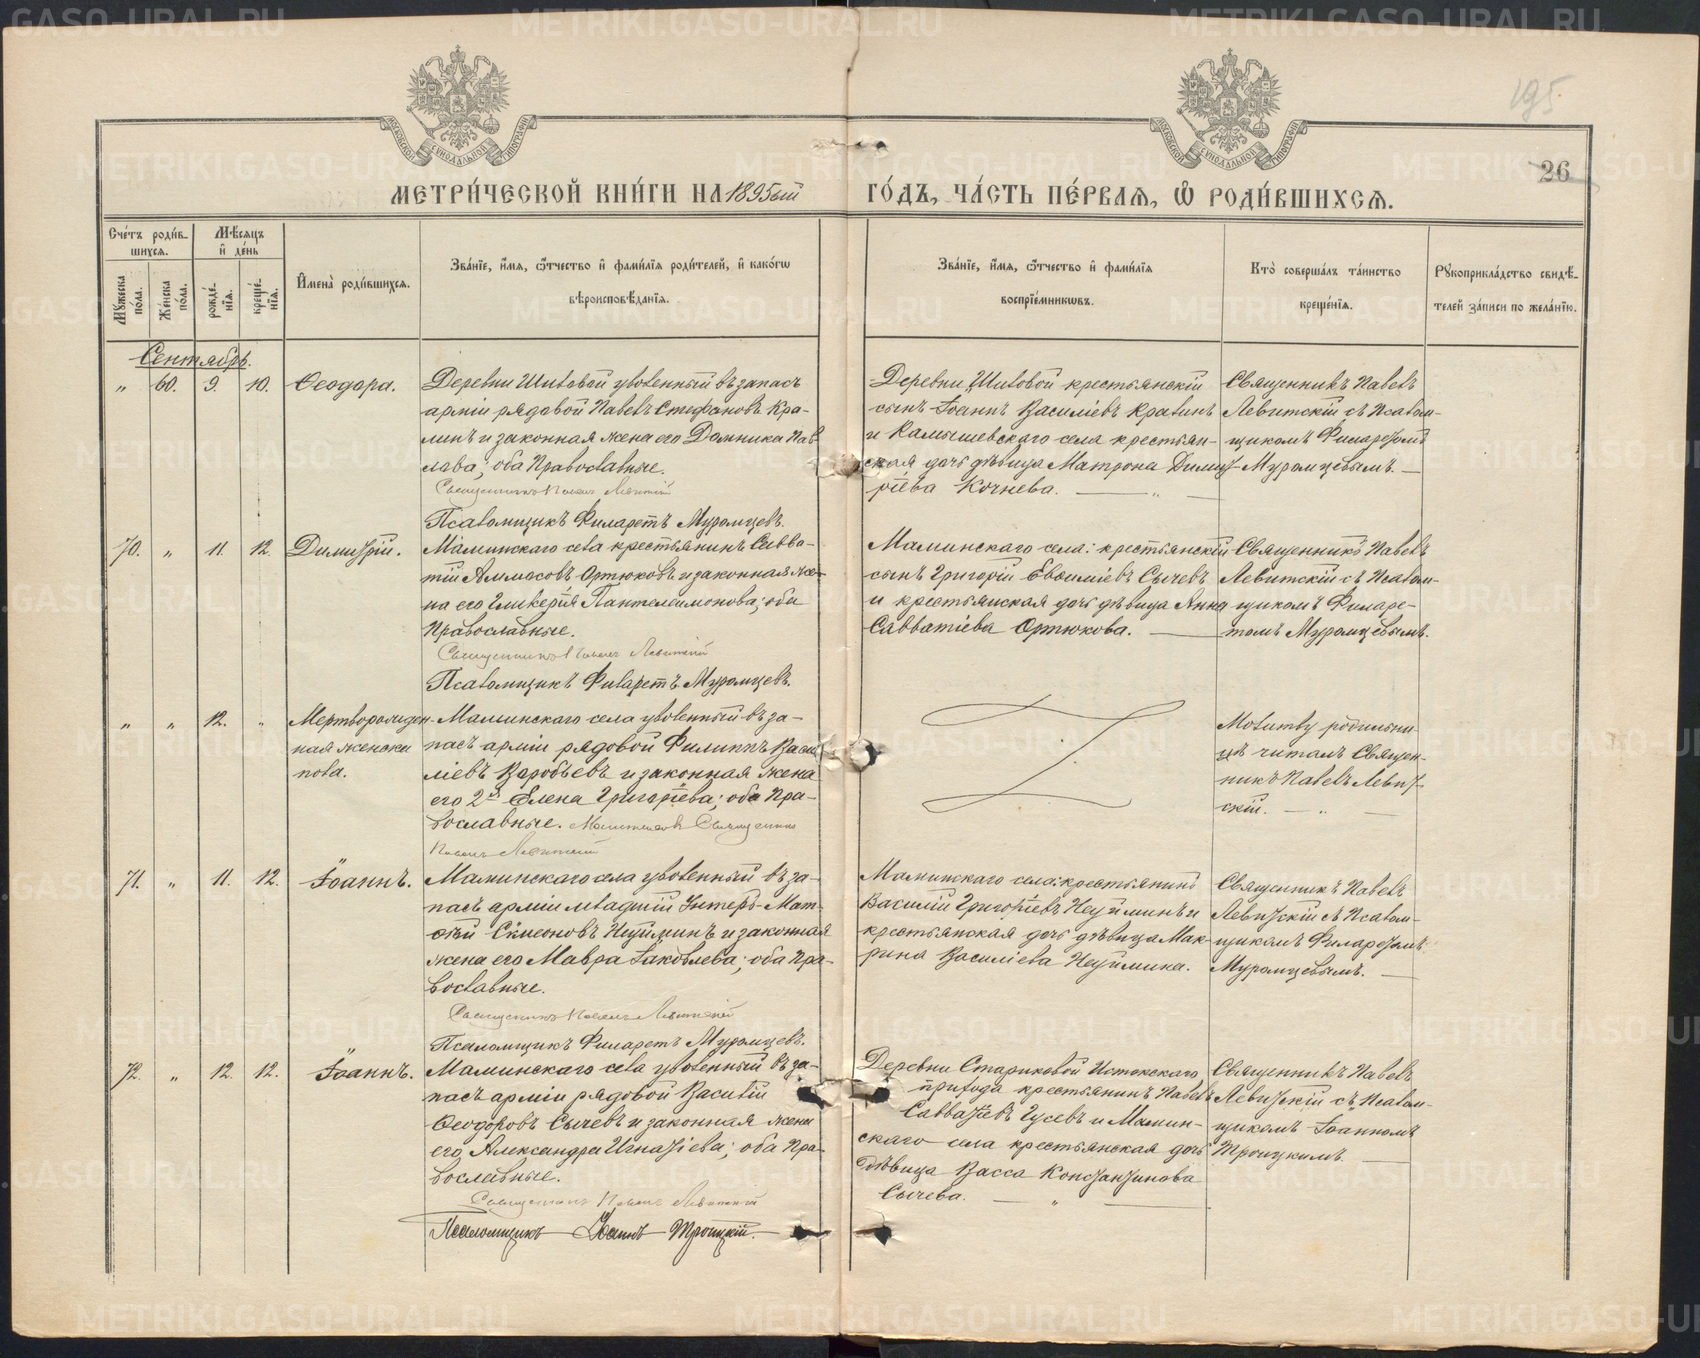 195
26
МОСКОВСКОЙ СѴНОДАЛЬНОЙ ТИПОГРАФІИ
МОСКОВСКОЙ СѴНОДАЛЬНОЙ ТИПОГРАФІИ
МЕТРИ́ЧЕСКОЙ КНИ́ГИ НА 1895ый ГО́ДЪ, ЧА́СТЬ ПЕ́РВАЯ, Ѽ РОДИ́ВШИХСЯ.
Сче́тъ роди́вшихся.
Мѣ́сяцъ и҆ де́нь
Мꙋ́жеска по́ла.
Же́нска по́ла.
рожде́нїя.
креще́нїя.
И҆мена̀ роди́вшихся.
Зва́нїе, и҆́мя, ѻ҆́тчество и҆ фами́лїя роди́телей, и҆ како́гѡ
вѣроисповѣ́данїя.
Зва́нїе, и҆́мя, ѻ҆́тчество и҆ фами́лїя
воспрїе́мникѡвъ.
Кто̀ соверша́лъ та́инство
креще́нїя.
Рꙋкоприкла́дство свидѣ́телей за́писи по жела́нїю.
Сентябрь.
„ 60. 9. 10. Ѳеодора.
Деревни Шиловой уволенный въ запасъ
арміи рядовой Павелъ Стефановъ Кра-
линъ и законная жена его Домника Пав-
лова; оба Православные.
Священникъ Павелъ Левитскій
Псаломщикъ Филаретъ Муромцевъ.
Деревни Шиловой крестьянскій
сынъ Іоаннъ Василіевъ Кралинъ
и Камышевскаго села крестьян-
ская дочь дѣвица Матрона Димит-
ріева Кочнева. — „ —
Священникъ Павелъ
Левитскій съ Псалом-
щикомъ Филаретомъ
Муромцевымъ. —
70. „ 11. 12. Димитрій.
Маминскаго села крестьянинъ Савва-
тій Аммосовъ Ортюковъ и законная же-
на его Гликерія Пантелеимонова; оба
Православные.
Священникъ Павелъ Левитскій
Псаломщикъ Филаретъ Муромцевъ.
Маминскаго села: крестьянскій
сынъ Григорій Евѳиміевъ Сычевъ
и крестьянская дочь дѣвица Анна
Савватіева Ортюкова. —
Священникъ Павелъ
Левитскій съ Псалом-
щикомъ Филаре-
томъ Муромцевымъ.
„ „ 12. „ Мертворожден-
ная женска
пола.
Маминскаго села уволенный въ за-
пасъ арміи рядовой Филиппъ Васи-
ліевъ Воробьевъ и законная жена
его 2я Елена Григоріева; оба Пра-
вославные. Священникъ
Павелъ Левитскій
Молитву родильни-
цѣ читалъ Священ-
никъ Павелъ Левит-
скій. — „ —
71. „ 11. 12. Іоаннъ.
Маминскаго села уволенный въ за-
пасъ арміи младшій Унтеръ-Мат-
ѳей Сѵмеоновъ Неуйминъ и законная
жена его Мавра Іаковлева; оба Пра-
вославные.
Священникъ Павелъ Левитскій
Псаломщикъ Филаретъ Муромцевъ.
Маминскаго села: крестьянинъ
Василій Григоріевъ Неуйминъ и
крестьянская дочь дѣвица Мак-
рина Василіева Неуймина.
Священникъ Павелъ
Левитскій съ Псалом-
щикомъ Филаретомъ
Муромцевымъ. —
72. „ 12. 12. Іоаннъ.
Маминскаго села уволенный въ за-
пасъ арміи рядовой Василій
Ѳеодоровъ Сычевъ и законная жена
его Александра Игнатіева; оба Пра-
вославные.
Священникъ Павелъ Левитскій
Псаломщикъ Іоаннъ Троицкій.
Деревни Стариковой Истокскаго
прихода крестьянинъ Павелъ
Савватіевъ Гусевъ и Мамин-
скаго села крестьянская дочь
дѣвица Васса Константинова
Сычева. — „ —
Священникъ Павелъ
Левитскій съ Псалом-
щикомъ Іоанномъ
Троицкимъ. —